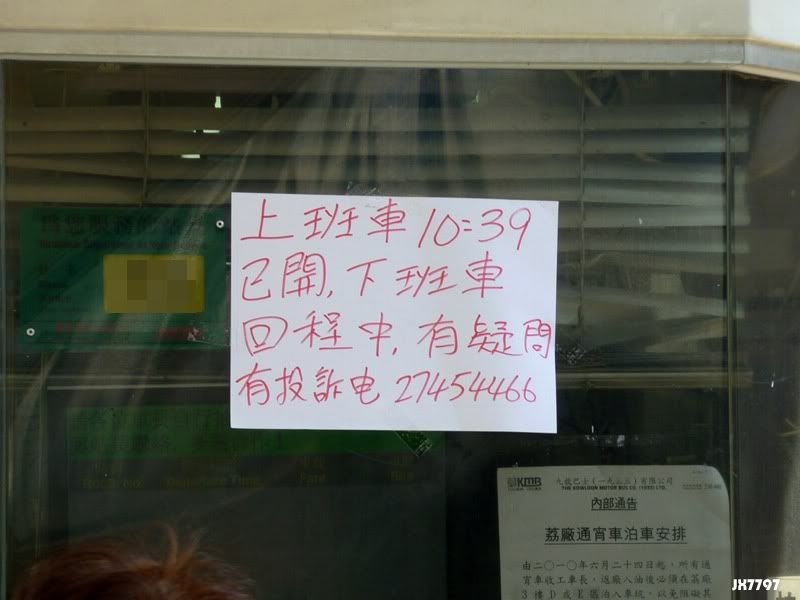 上班車10:39
已開,下班車
回程中,有疑問
有投訴电 27454466
KMB
九龍巴士(一九三三)有限公司
THE KOWLOON MOTOR BUS CO. (1933) LTD.
內部通告
荔廠通宵車泊車安排
由二〇一〇年六月二十四日起,所有通
宵車收工車長,返廠入油後必須在荔廠
3樓D或E區泊入車坑,以免阻礙其
Departure Time
Fare
JX7797